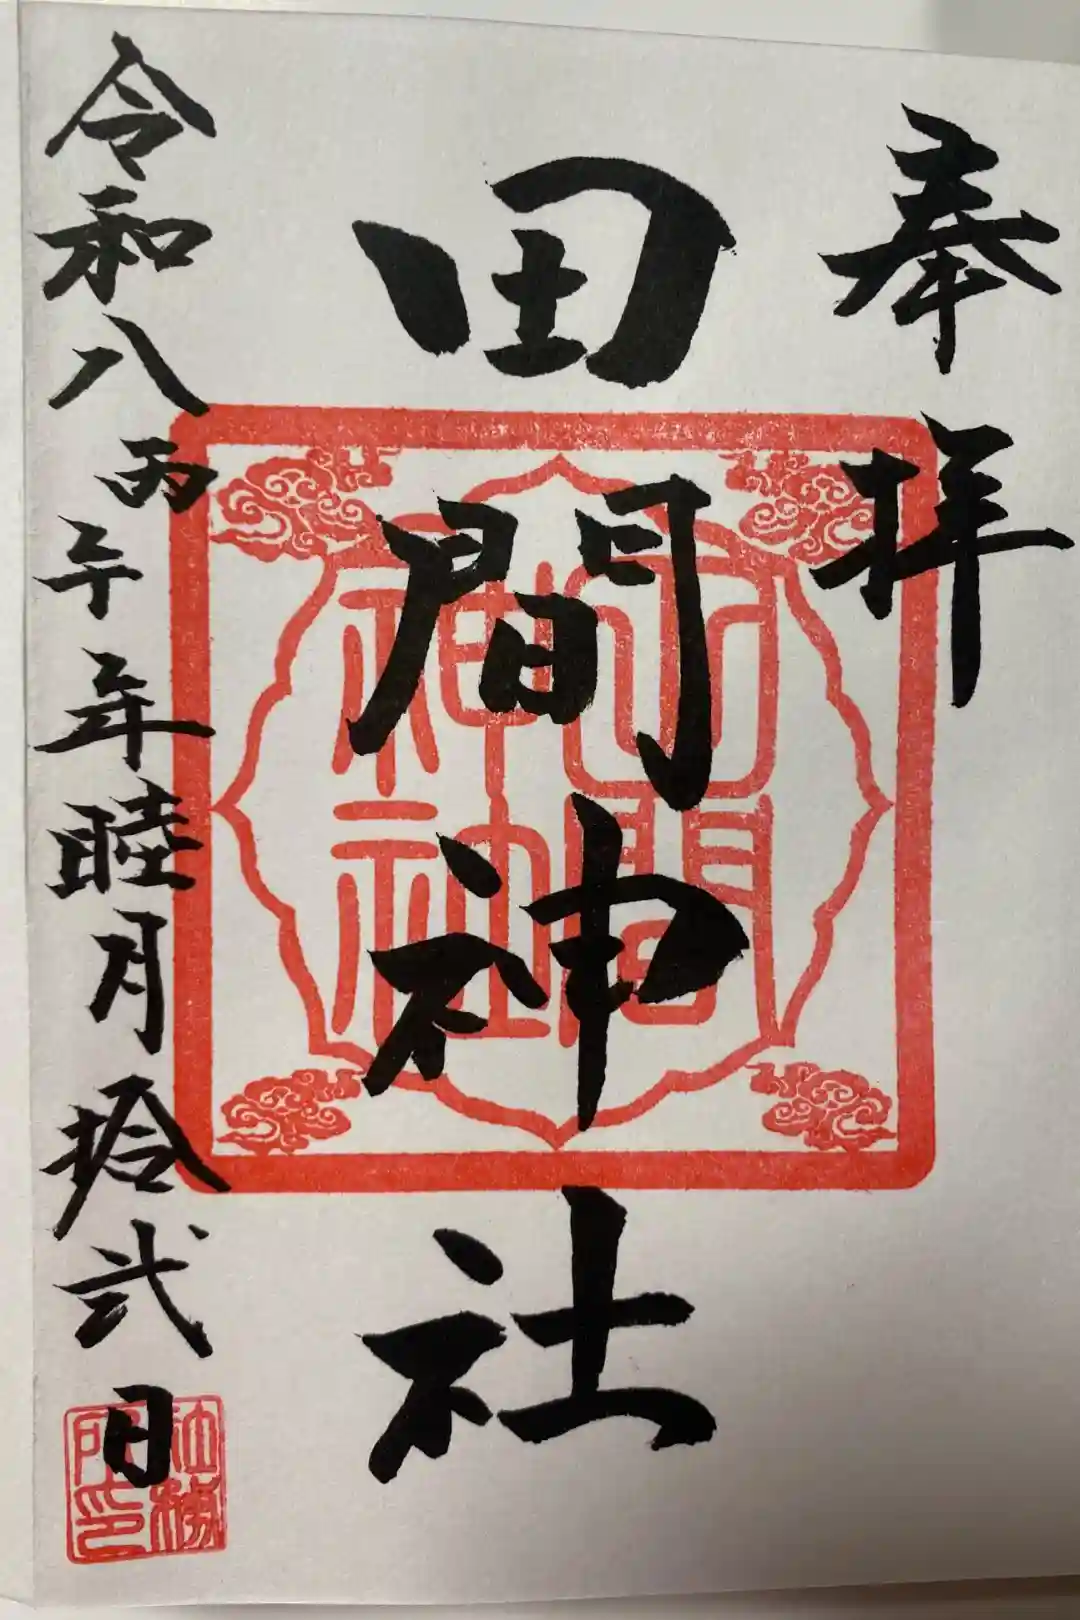 奉拝
田間神社
田間神社
令和八丙午年睦月拾弐日
社務所印